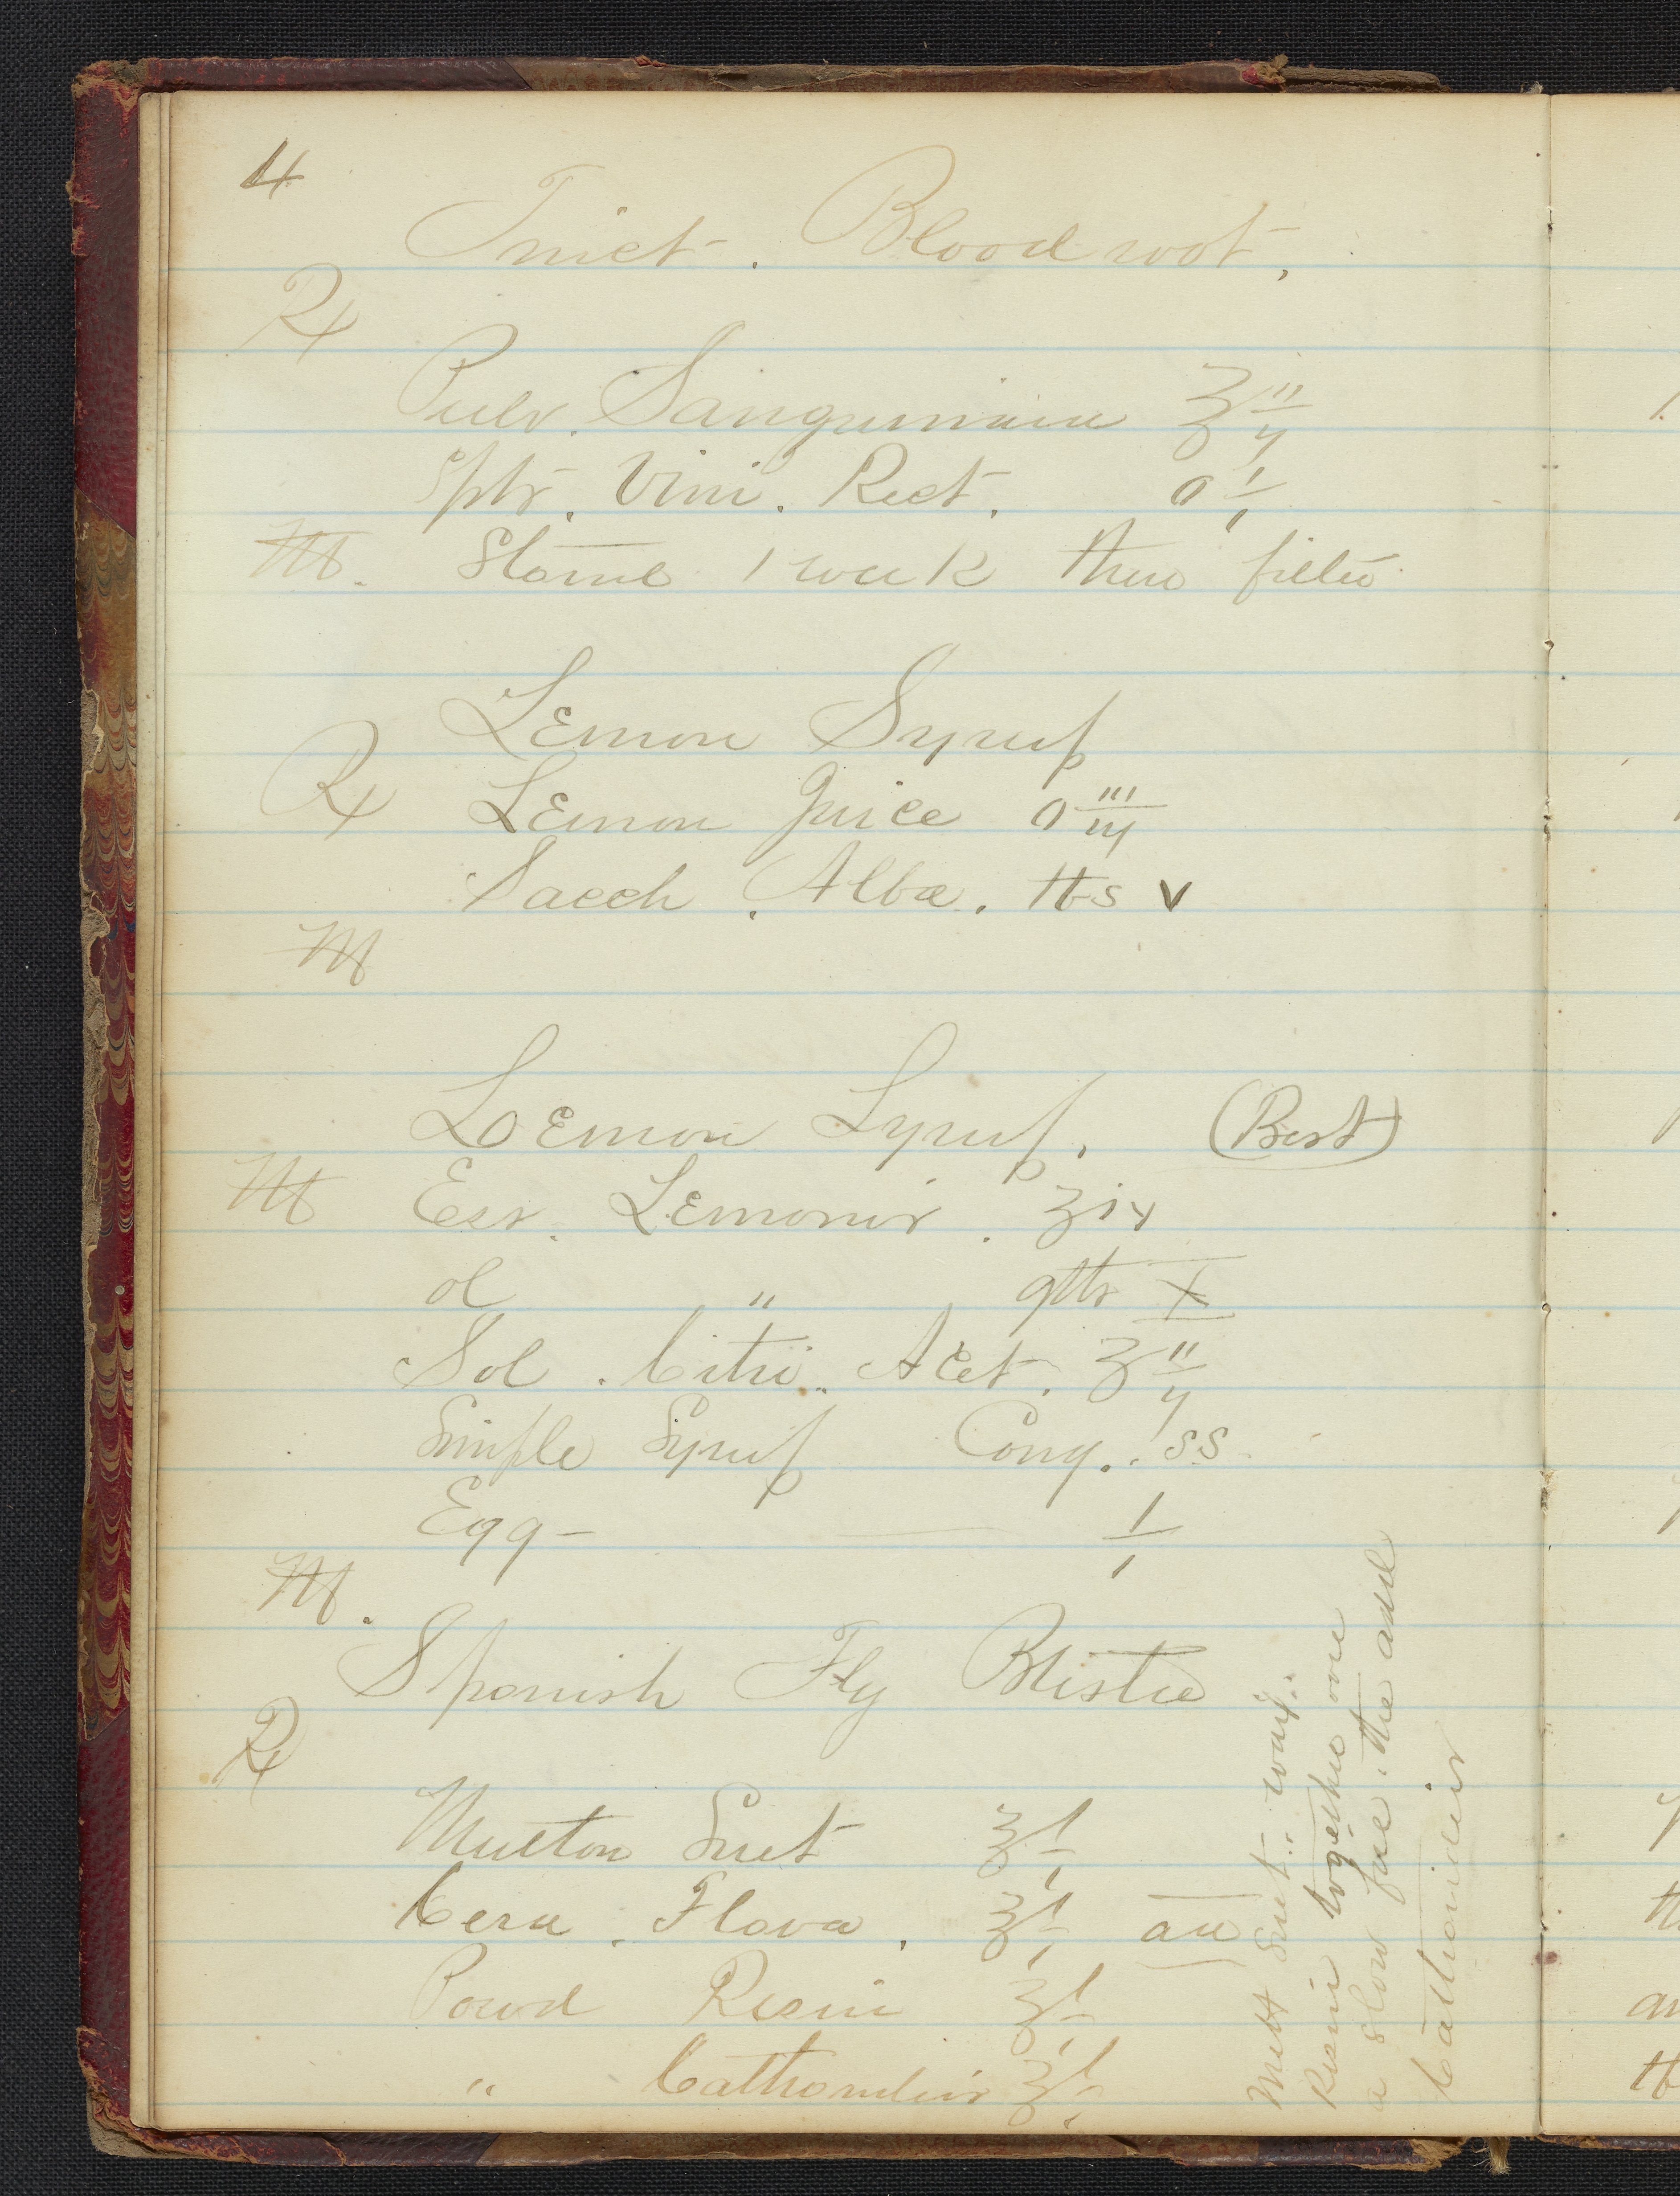 4
Tinct. Blood root.
Rx
Pulv. Sanguinaria ℥ ii
Spts. Vini. Rect. O i
M. Stand 1 week then filter
Lemon Syrup
Rx Lemon Juice O iii
Sacch. Alba. lbs v
M
Lemon Syrup. (Best)
M Ess. Lemonis. ℥ iv
Ol " gtts X
Sol. Citri. Acet. ℥ ii
Simple Syrup Cong.. ss
Egg - — i
M.
Spanish Fly Blister
Rx
Mutton Suet ℥ i
Cera. Flava. ℥ i aa
Powd Resin ℥ i
" Catharidis ℥ i
Melt Suet.. wax..
Resin together over
a slow fire. the add
Catharidis